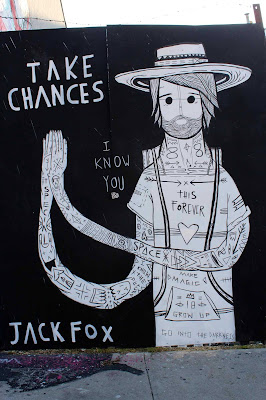 TAKE
CHANCES
I
KNOW
YOU
8 8
THIS
FOREVER
SPACEX
MAKE
MAGIC
18
GROW UP
GO INTO THE DARKNESS
JACK FOX